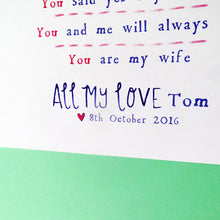 You said yes
You and me will always
You are my wife
ALL MY LOVE Tom
8th October 2016